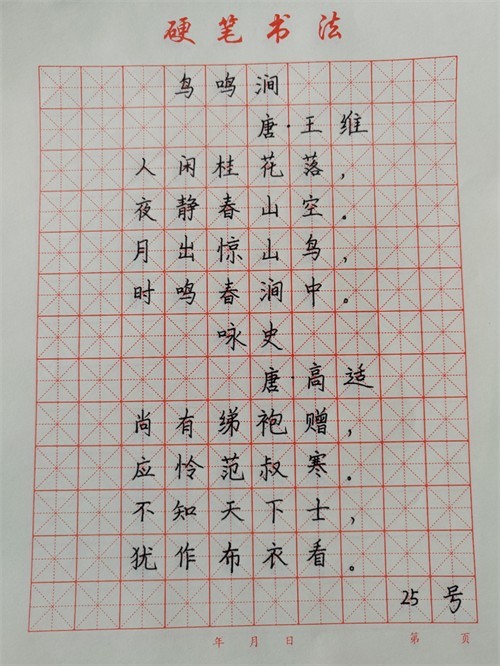 硬笔书法
鸟鸣涧
唐·王维
人闲桂花落，
夜静春山空。
月出惊山鸟，
时鸣春涧中。
咏史
唐·高适
尚有绨袍赠，
应怜范叔寒。
不知天下士，
犹作布衣看。
25号
年 月 日 第 页